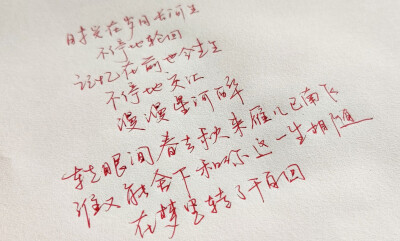 时光在岁月长河里
不停地轮回
记忆在前世今生里
不停地交汇
漫漫星河
转眼间春去秋来雁儿已南飞
谁又能舍下和你这一生相随
在梦里转了千百回